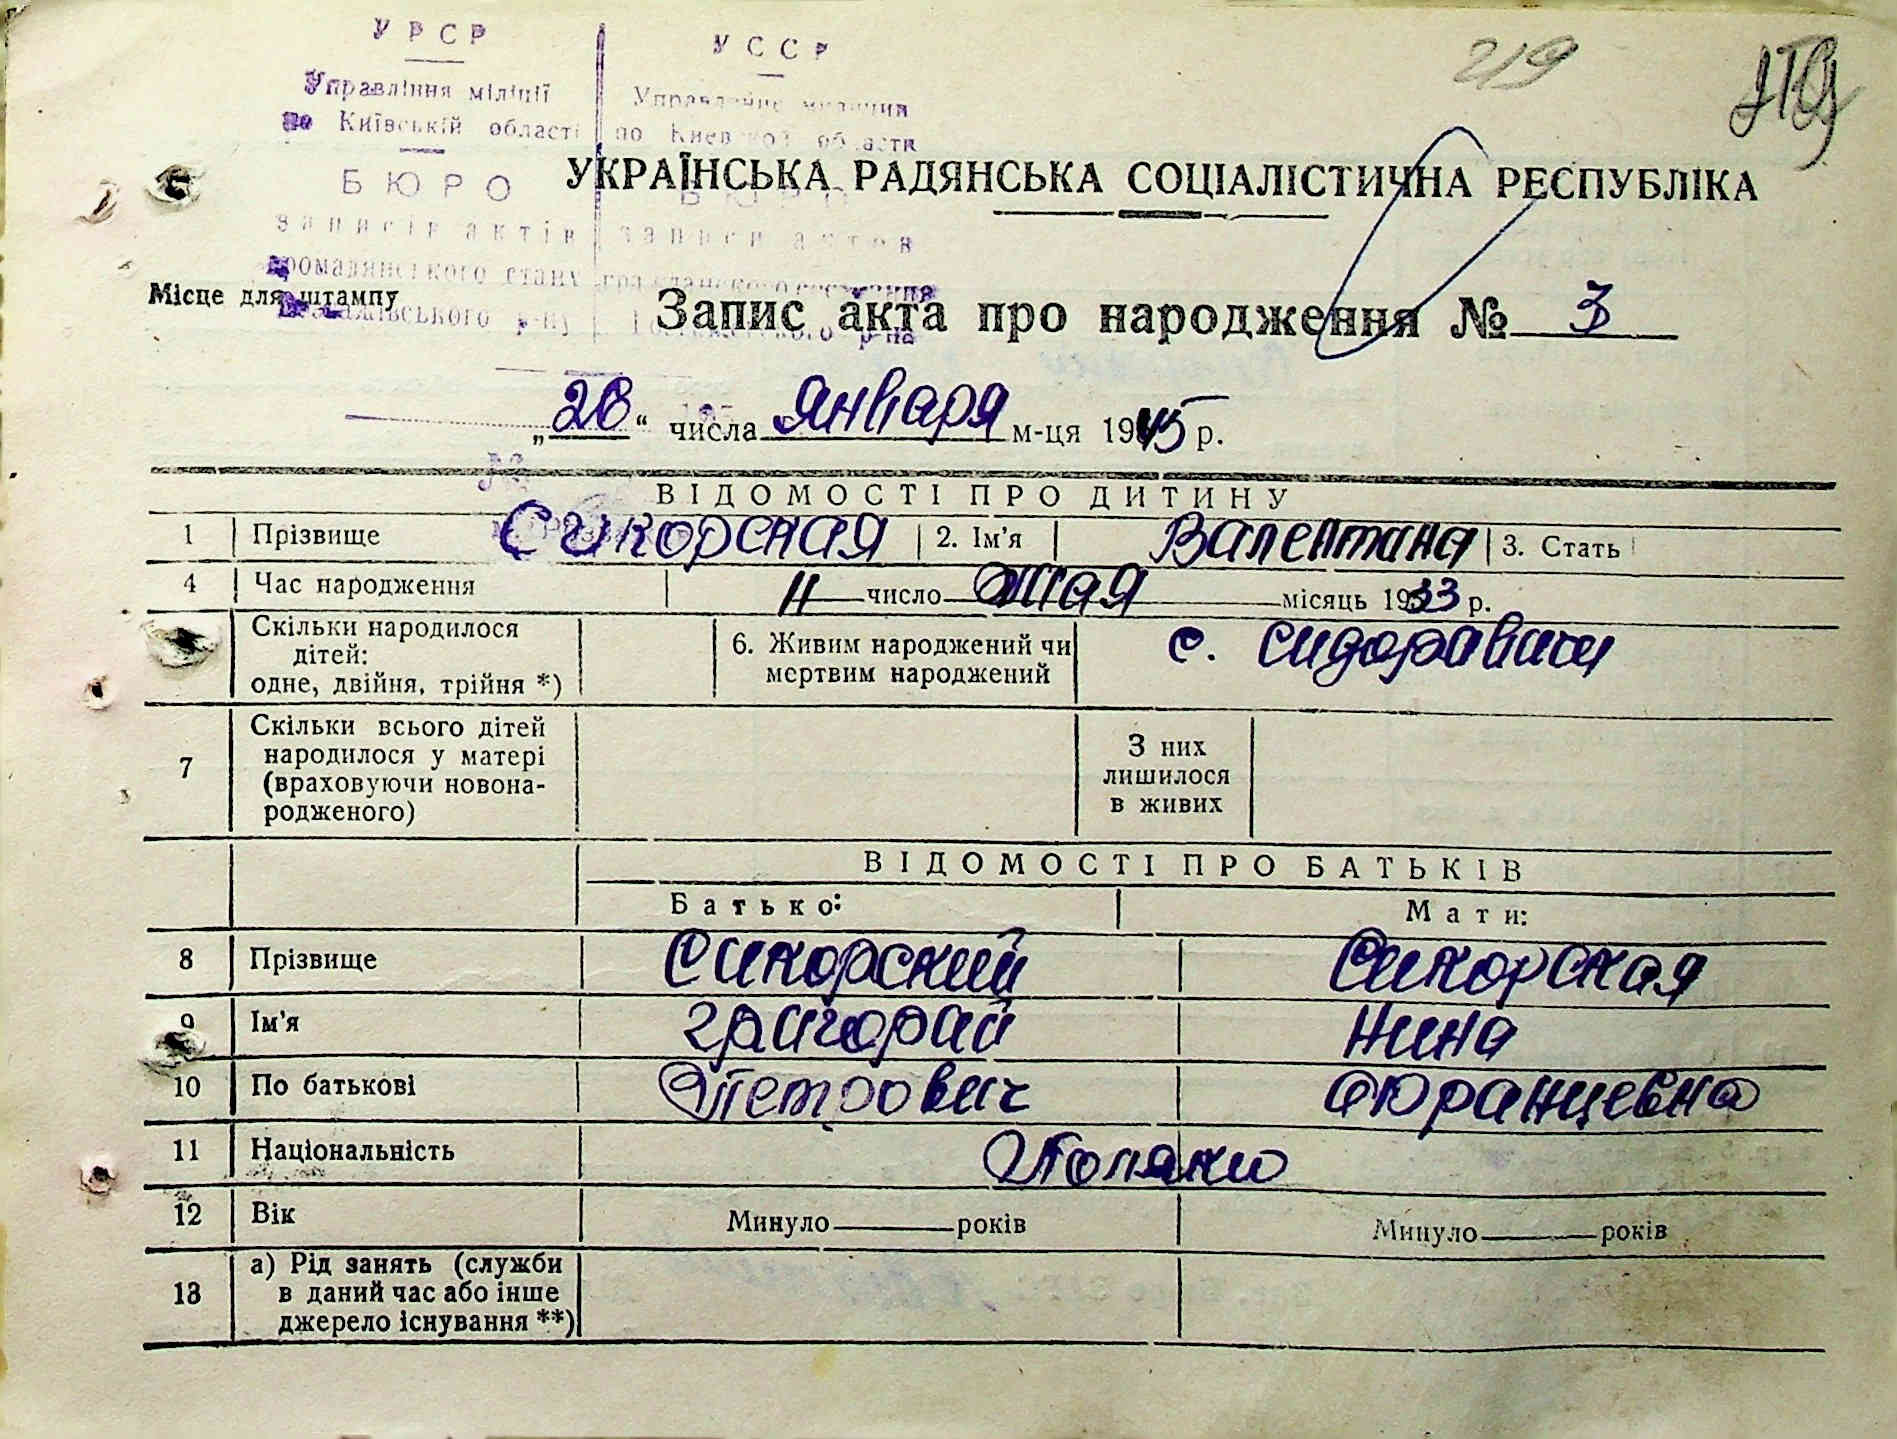 УРСР
УССР
219
Управління міліції
Управление милиции
по Київській області
по Киевской области
БЮРО
БЮРО
УКРАЇНСЬКА РАДЯНСЬКА СОЦІАЛІСТИЧНА РЕСПУБЛІКА
записів актів
записи актов
громадянського стану
гражданского состояния
Місце для штампу
Запис акта про народження № 3
„20“ числа января м-ця 1945 р.
ВІДОМОСТІ ПРО ДИТИНУ
1 Прізвище Сикорская 2. Ім’я Валентина 3. Стать
4 Час народження 11 число мая місяць 1933 р.
Скільки народилося дітей: одне, двійня, трійня *) 6. Живим народжений чи мертвим народжений с. Сидоровичи
7 Скільки всього дітей народилося у матері (враховуючи новонародженого) З них лишилося в живих
ВІДОМОСТІ ПРО БАТЬКІВ
Батько: Мати:
8 Прізвище Сикорский Сикорская
9 Ім’я Григорий Нина
10 По батькові Петрович Францевна
11 Національність Поляки
12 Вік Минуло років Минуло років
13 а) Рід занять (служби
в даний час або інше
джерело існування **)